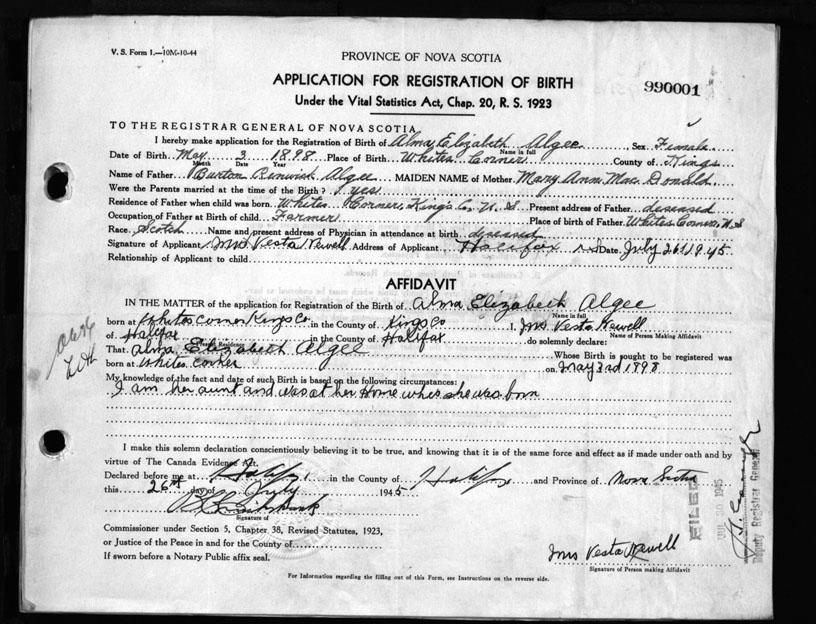 V. S. Form 1.—10M-10-44
PROVINCE OF NOVA SCOTIA
APPLICATION FOR REGISTRATION OF BIRTH
990001
Under the Vital Statistics Act, Chap. 20, R. S. 1923
TO THE REGISTRAR GENERAL OF NOVA SCOTIA
I hereby make application for the Registration of Birth of Alma Elizabeth Algee Sex Female
Name in full
Date of Birth May 3 1898 Place of Birth Whites Corner County of Kings
Month Date Year
Name of Father Burton Renwick Algee MAIDEN NAME of Mother Mary Ann Mac Donald
Were the Parents married at the time of the Birth? yes
Residence of Father when child was born Whites Corner, King's Co. N. S Present address of Father deseased
Occupation of Father at Birth of child Farmer Place of Birth of Father Whites Corner, N. S
Race Scotch Name and present address of Physician in attendance at birth deseased
Signature of Applicant Mrs Vesta Newell Address of Applicant Halifax Date July 26 1945
Relationship of Applicant to child
AFFIDAVIT
IN THE MATTER of the application for Registration of the Birth of Alma Elizabeth Algee
Name in full
born at Whites Corner Kings Co in the County of Kings Co I, Mrs Vesta Newell
Name of Person Making Affidavit
of Halifax in the County of Halifax do solemnly declare:
Present Residence
That Alma Elizabeth Algee Whose Birth is sought to be registered was
born at Whites Corner on May 3rd 1898
My knowledge of the fact and date of such Birth is based on the following circumstances:
I am her aunt and was at her Home when she was born
I make this solemn declaration conscientiously believing it to be true, and knowing that it is of the same force and effect as if made under oath and by
virtue of The Canada Evidence Act.
Declared before me at Halifax in the County of Halifax and Province of Nova Scotia
this 26th day of July 1945
Signature of
Commissioner under Section 5, Chapter 38, Revised Statutes, 1923,
or Justice of the Peace in and for the County of
If sworn before a Notary Public affix seal.
Mrs Vesta Newell
Signature of Person making Affidavit
For Information regarding the filling out of this Form, see Instructions on the reverse side.
FILED
JUL 30 1945
Deputy Registrar General